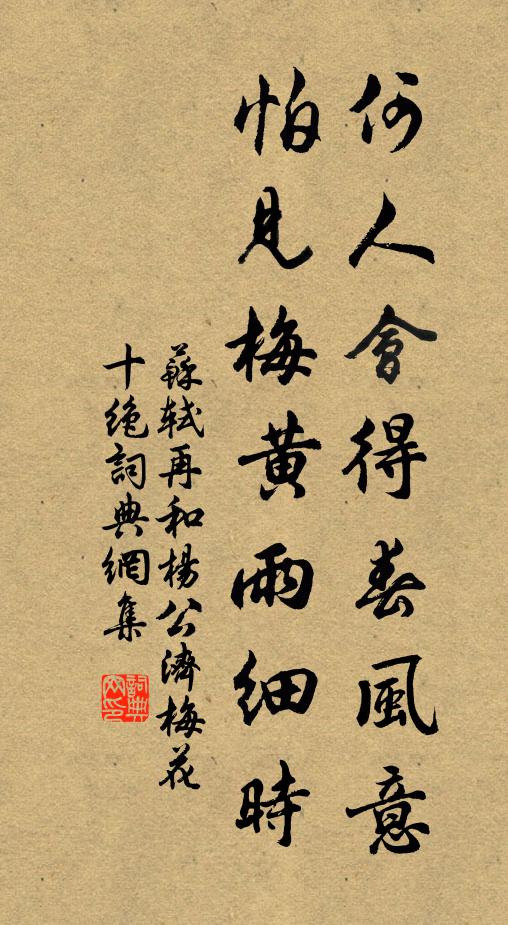 何人會得春風意
怕見梅黄雨細時
蘇軾再和楊公濟梅花
十絶詞典網集
詞典
网印